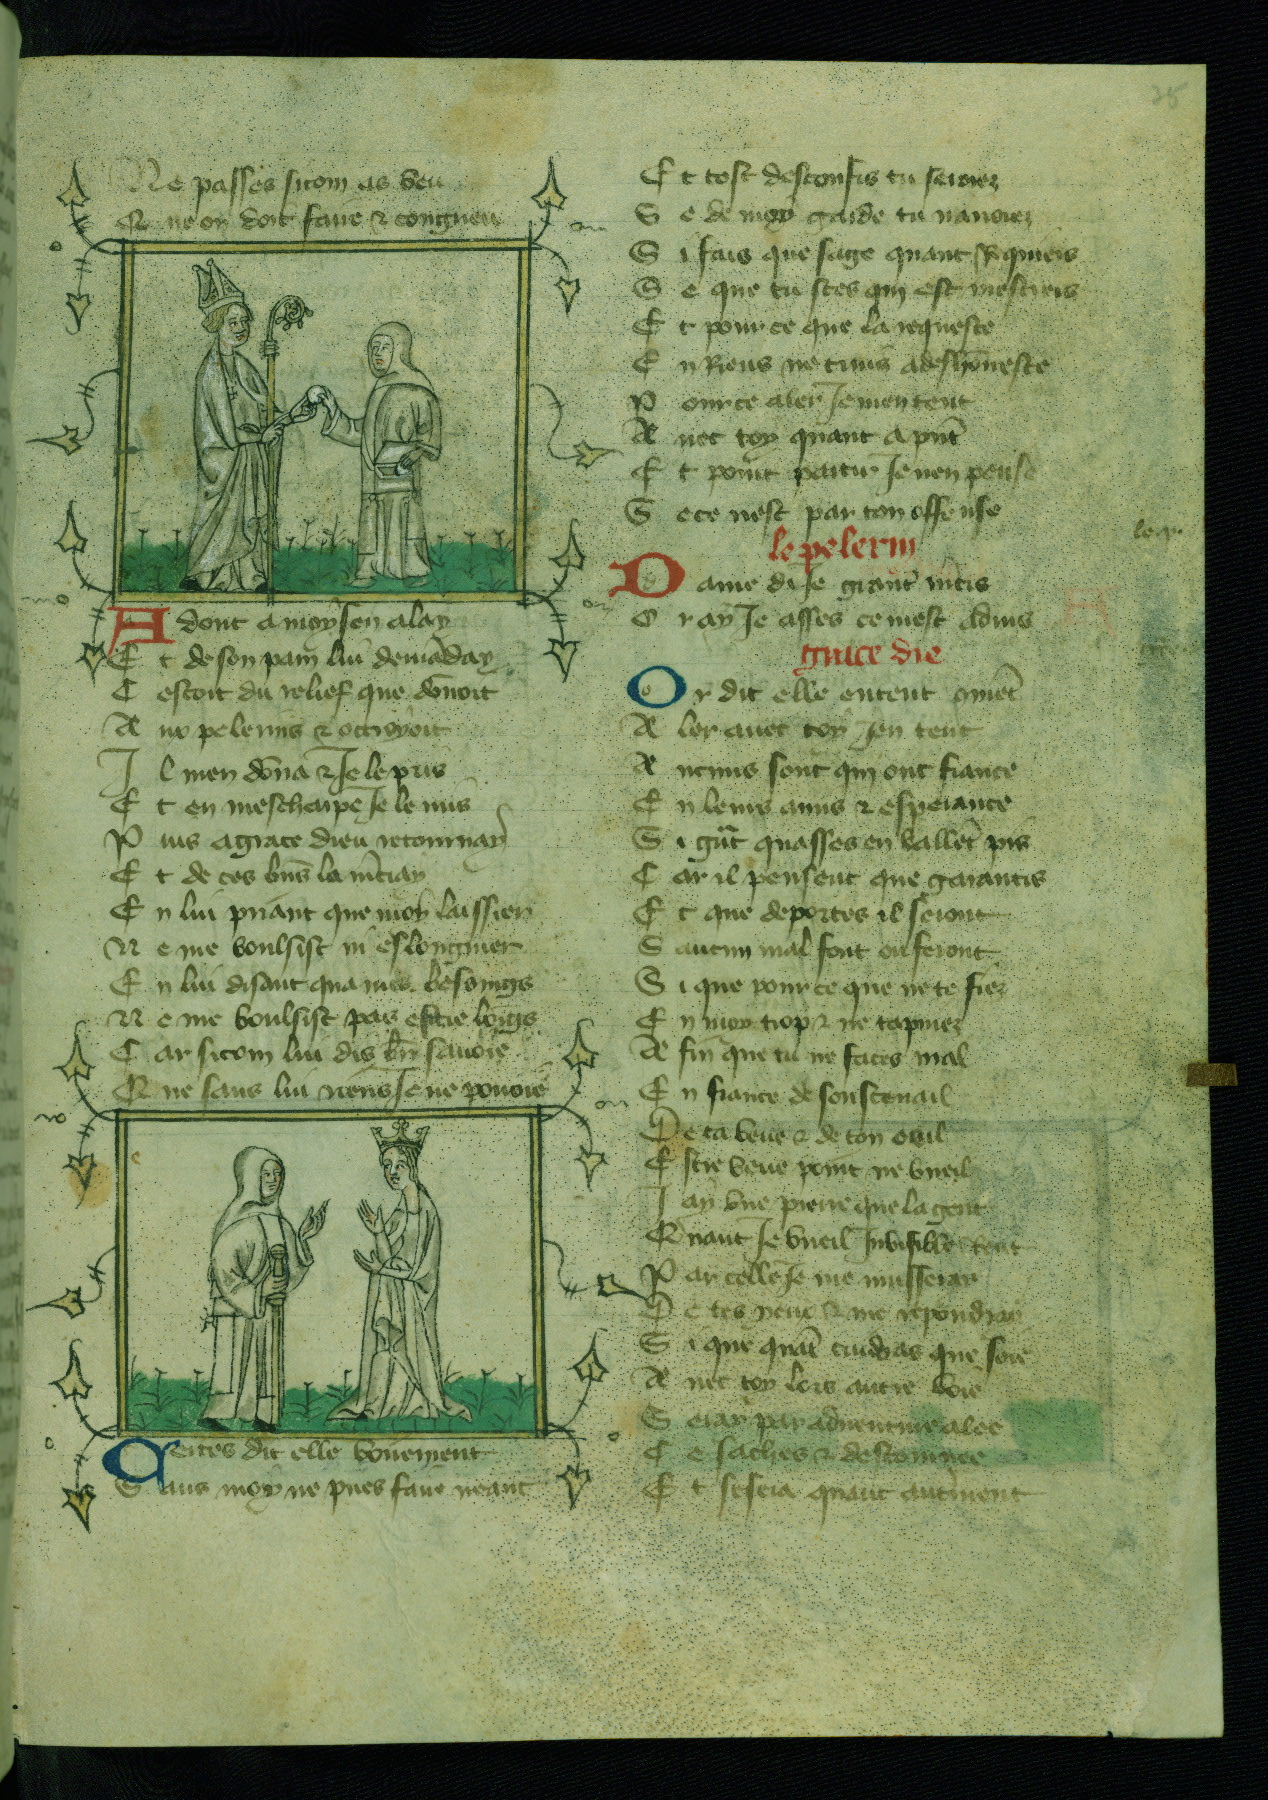 Ne passes sicom as veu
Que on doit faire & congneu
A dont a moysen alay
E t de son pain lui demãday
C estoit du relief que dõnoit
A ux pelerins & ottroyoit
I l men dõna & Je le pris
E t en mescherpe Je le mis
P uis a grace dieu retournay
E t de ces biẽs la m̃ciay
E n lui priant que moy laissier
N e me voulsist ni eslongnier
E n lui disant qua mes besoings
N e me voulsist pas estre loigs
C ar sicom lui dis biẽ savoie
Que sans lui riens Je ne pouoie
Certes dit elle vraiement
S ans moy ne pues faire neant
E t tost desconfis tu seroiez
S e de moy garde tu navoiez
S i fais que sage quant Requiers
S e que tu sces qui est mestiers
E t pour ce que la requeste
E n Riens ne truis a deshõneste
P our ce aler Je men tent
A uec toy quant a p̃nt
E t point partir Je nen pense
S e ce nest par ton offense
le pelerin
D ame di Je grant m̃cis
O r ay Je asses ce mest aduis
grace die
Or dit elle entent cõmẽt
A ler auec toy Jen tent
A ucuns sont qui ont fiance
E n leurs amis & esperance
S i grãt quasses en vallẽt pis
C ar il pensent que garantis
E t que deportes il seront
S aucun mal font ou feront
S i que pour ce que ne te fiez
E n moy trop & ne tapuiez
A fin que tu ne faces mal
E n fiance de soustenail
De ta veue & de ton oeil
E stre veue point ne vueil
J ay vne pierre que la gent
Quant Je vueil Invisible rent
P ar celle Je me musseray
D e tes yeux & me repondray
S i que quãt cuidras que soie
A uec toy lors autre voie
S eray par aduenture alee
C e saches & destournee
E t se sera quant autrement